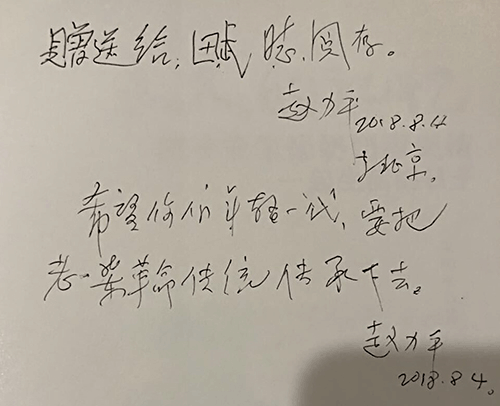 赠送给:田斌 同志,阅存。
赵力平 2018.8.4
于北京。
希望你们年轻一代,要把
老一辈革命传统传承下去。
赵力平
2018.8.4。